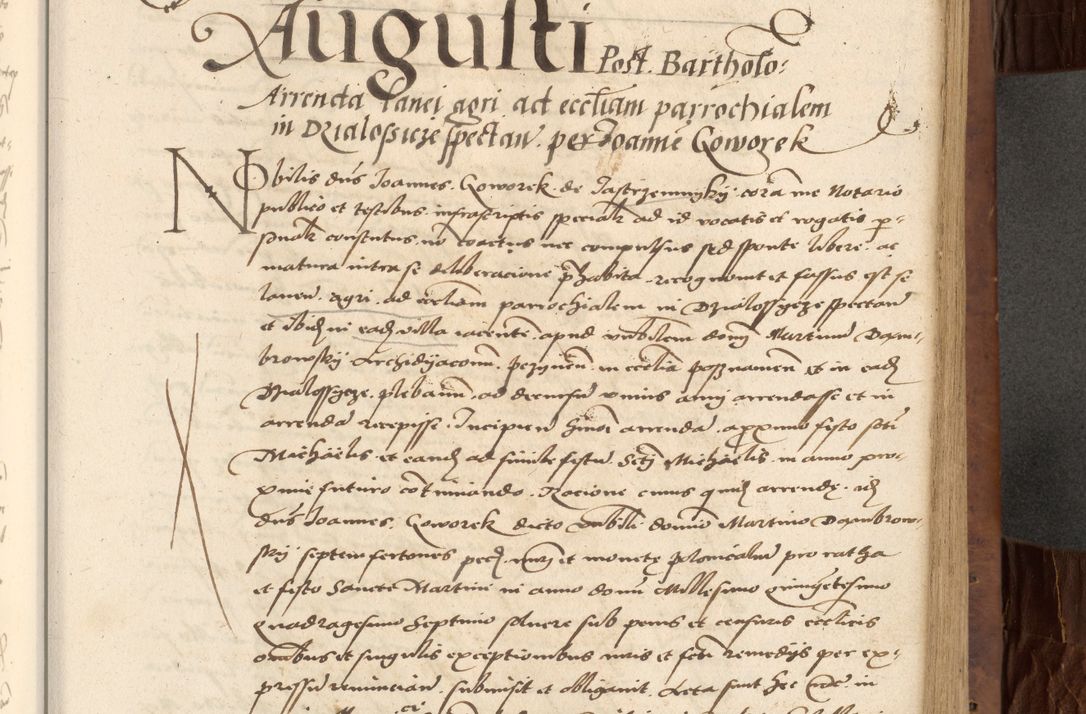 Augusti Post. Bartholo:
Arrenda lanei agri ad eccliam parrochialem
in Dzialossicze spectan. per Joanne Goworek
Nobilis dns Joannes. Goworek. de Jastrzemnyky cora me Notario
publico et testibus infrascriptis specialr ad id vocatis et rogatis p-
sonalr constitutus. no coactus nec compulsus sed sponte libere. ac
matura intra se deliberacione phabita. recognovit et fassus est se
laneu. agri. ad eccliam parrochialem in Dzialossgeze spectan
et ibid in ead villa iacente. apud vnbilem domi Martinu Dam-
browsky Archidyaconu. pczynen. in ecclia posznamen et in ead
Dzialossgeze. plebanu. ad decursu vnius anni arrendasse et in
arrenda recepisse. Incipien hmoi arrenda. a pximo festo scti
Michaelis et eand ad simile festu. Scti Michaelis. in anno pro-
xime futuro continuando. Racione cuius quid arrende. id
dns Joannes. Goworek dicto vnbili domio Martino Dambrow-
sky septem fertones pecu. nuri et monete polonicaliu pro ratha
et festo Sancti Martini in anno domi Millesimo quingetesimo
quadragesimo Septimo solvere sub penis et censuris ecclicis
omibus et singulis exceptionibus iuris et fcti remedijs per ex-
pressu renuncian. submisit et obligavit. Acta sunt hec in